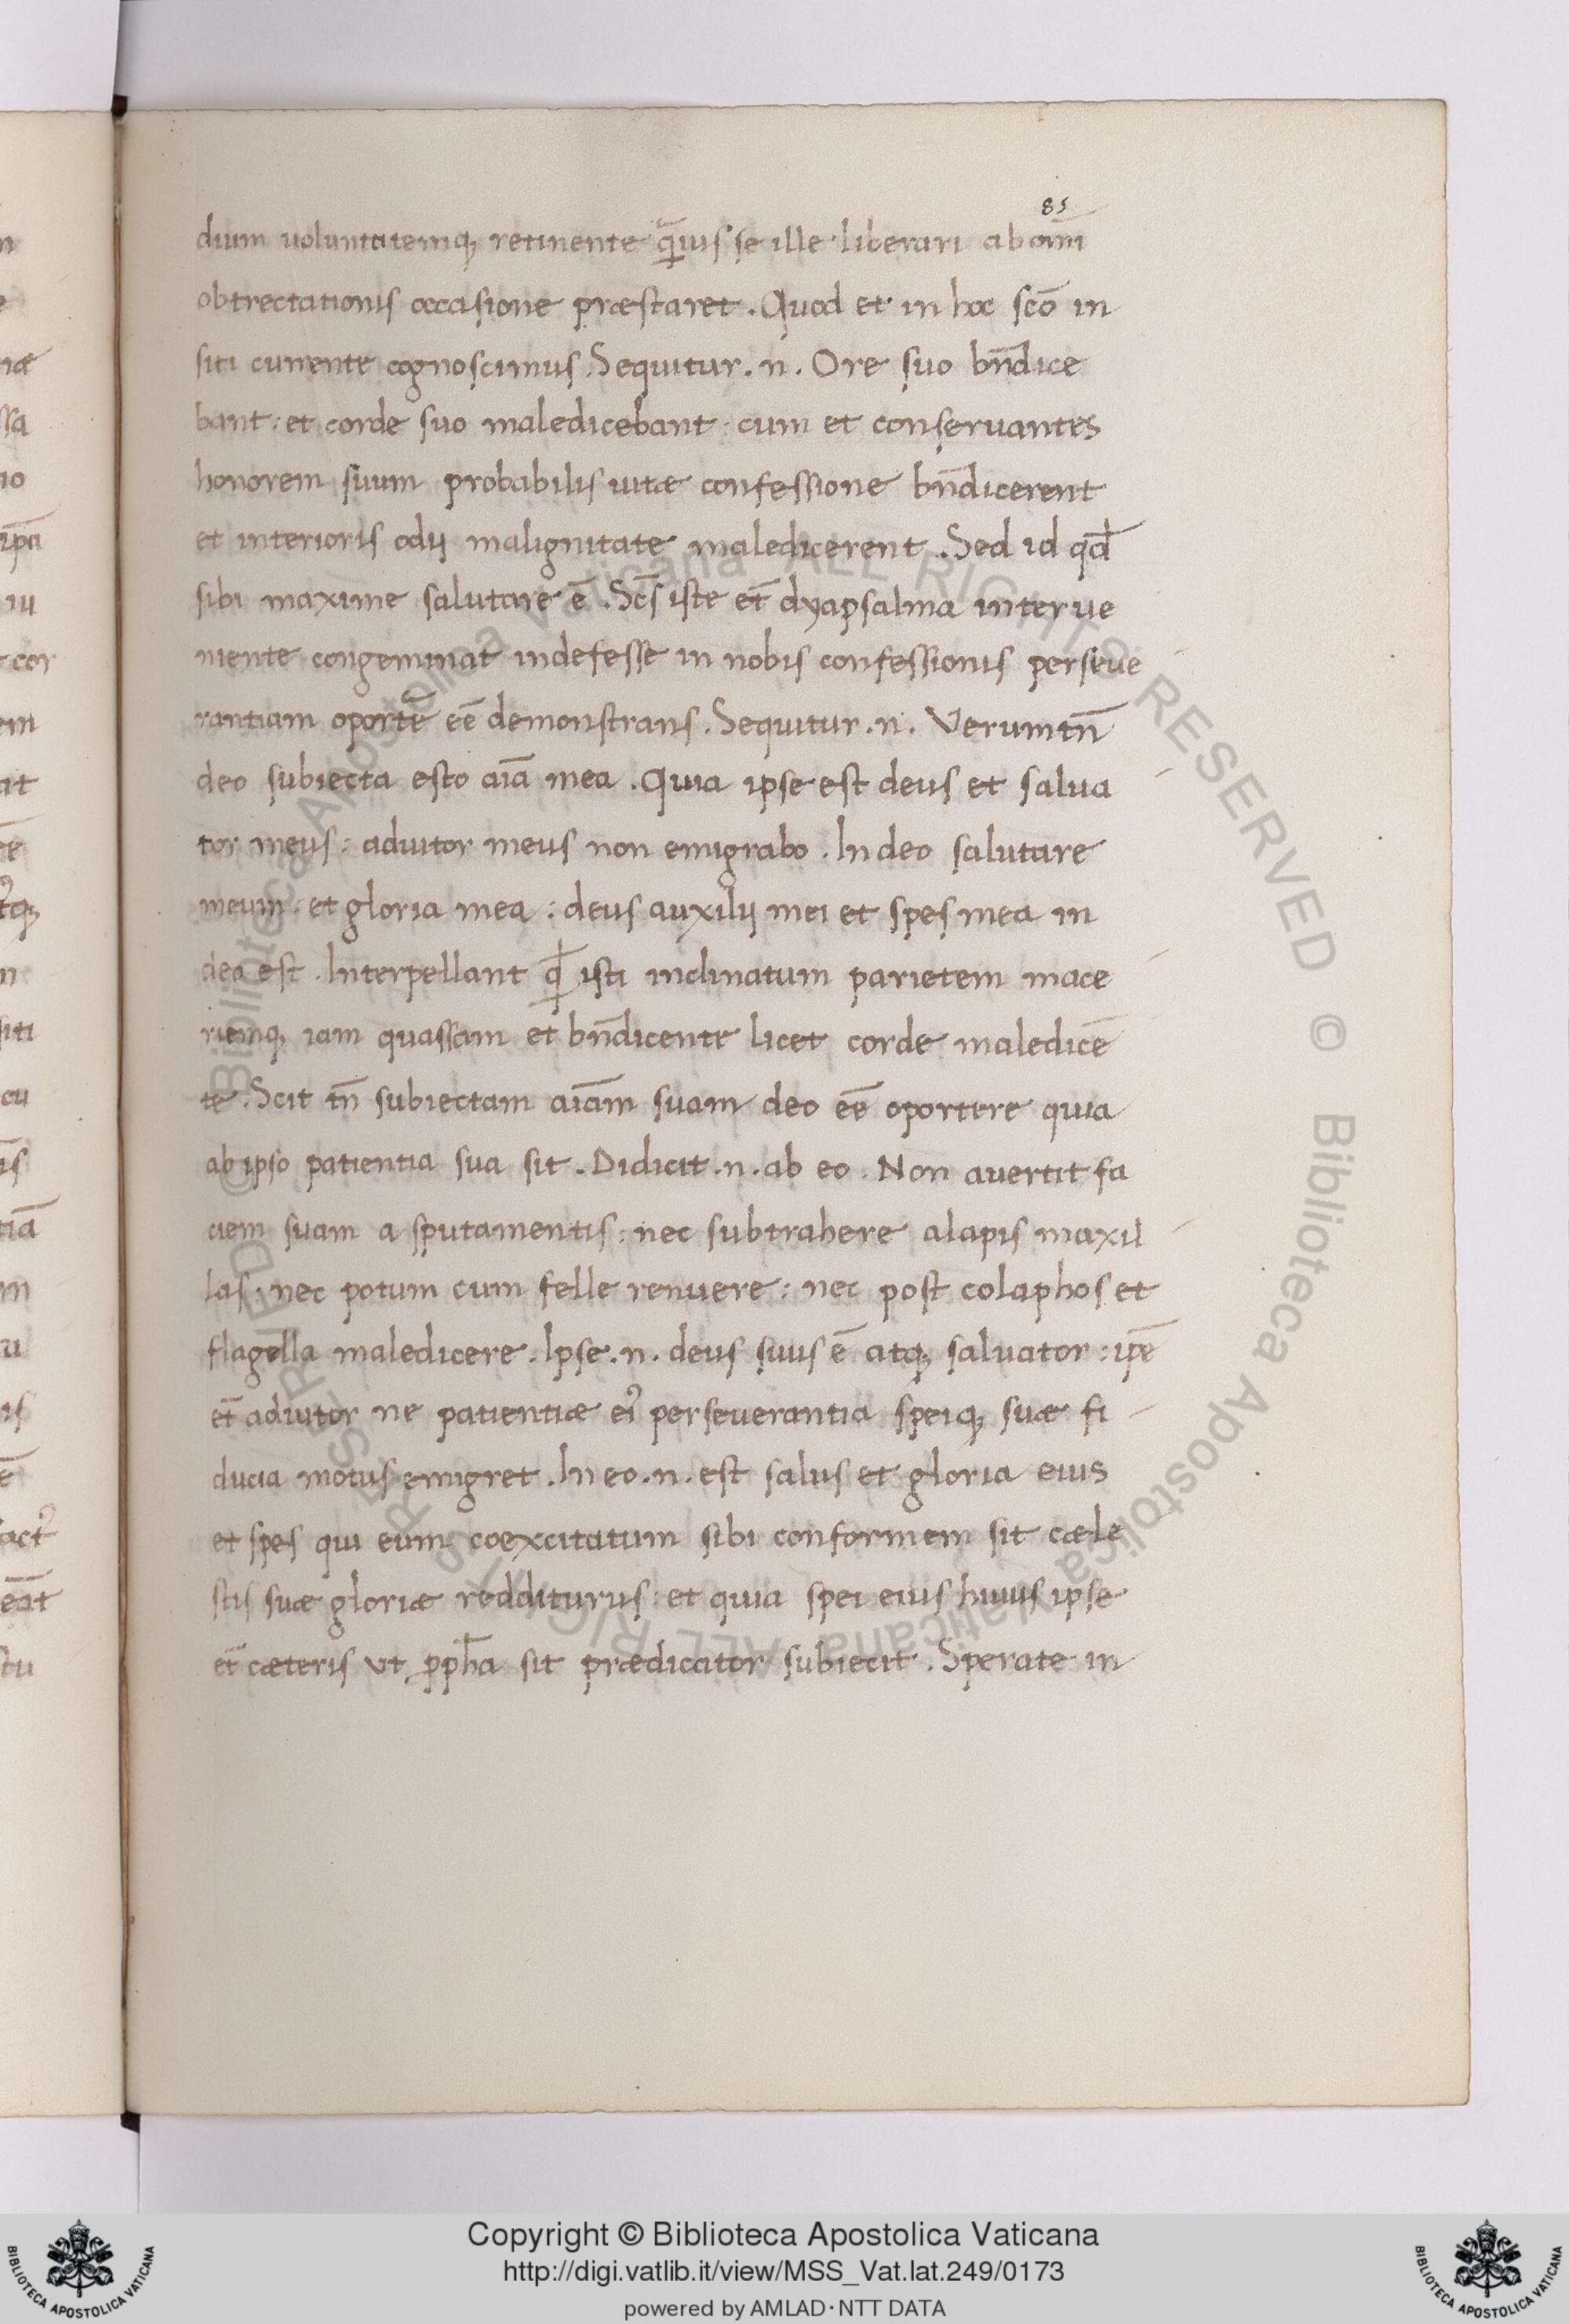 85
dium uoluntatemq; retinente q̃uis se ille liberari ab oim̃
obtrectationis occasione præstaret . Quod et in hoc sc̃o in
siti currente cognoscimus . Sequitur . n . Ore suo bñdice
bant : et corde suo maledicebant : cum et conseruantes
honorem suum probabilis uitæ confessione bñdicerent
et interioris odij malignitate maledicerent . Sed id qd̃
sibi maxime salutare ẽ . Sc̃s iste et̃ dyapsalma interue
niente congeminat indefesse in nobis confessionis perseue
rantiam oportẽ eẽ demonstrans . Sequitur . n . Verumtñ
deo subiecta esto aĩa mea . Quia ipse est deus et salua
tor meus : adiutor meus non emigrabo . In deo salutare
meum : et gloria mea : deus auxilij mei et spes mea in
deo est . Interpellant q̃ isti inclinatum parietem mace
riemq; iam quassam et bñdicente licet corde maledicẽ
te . Scit tñ subiectam aĩam suam deo eẽ oportere quia
ab ipso patientia sua sit . Didicit . n . ab eo . Non auertit fa
ciem suam a sputamentis : nec subtrahere alapis maxil
las : nec potum cum felle renuere : nec post colaphos et
flagella maledicere . Ipse . n . deus suus ẽ atq; saluator : ip̃e
et̃ adiutor ne patientiæ ei9 perseuerantia speiq; suæ fi
ducia motus emigret . In eo . n . est salus et gloria eius
et spes qui eum coexcitatum sibi conformem sit cæle
stis suæ gloriæ redditurus : et quia spei eius huius ipse
et̃ cæteris vt pph̃a sit prædicator subiecit . Sperate in
Copyright © Biblioteca Apostolica Vaticana
http://digi.vatlib.it/view/MSS_Vat.lat.249/0173
powered by AMLAD · NTT DATA